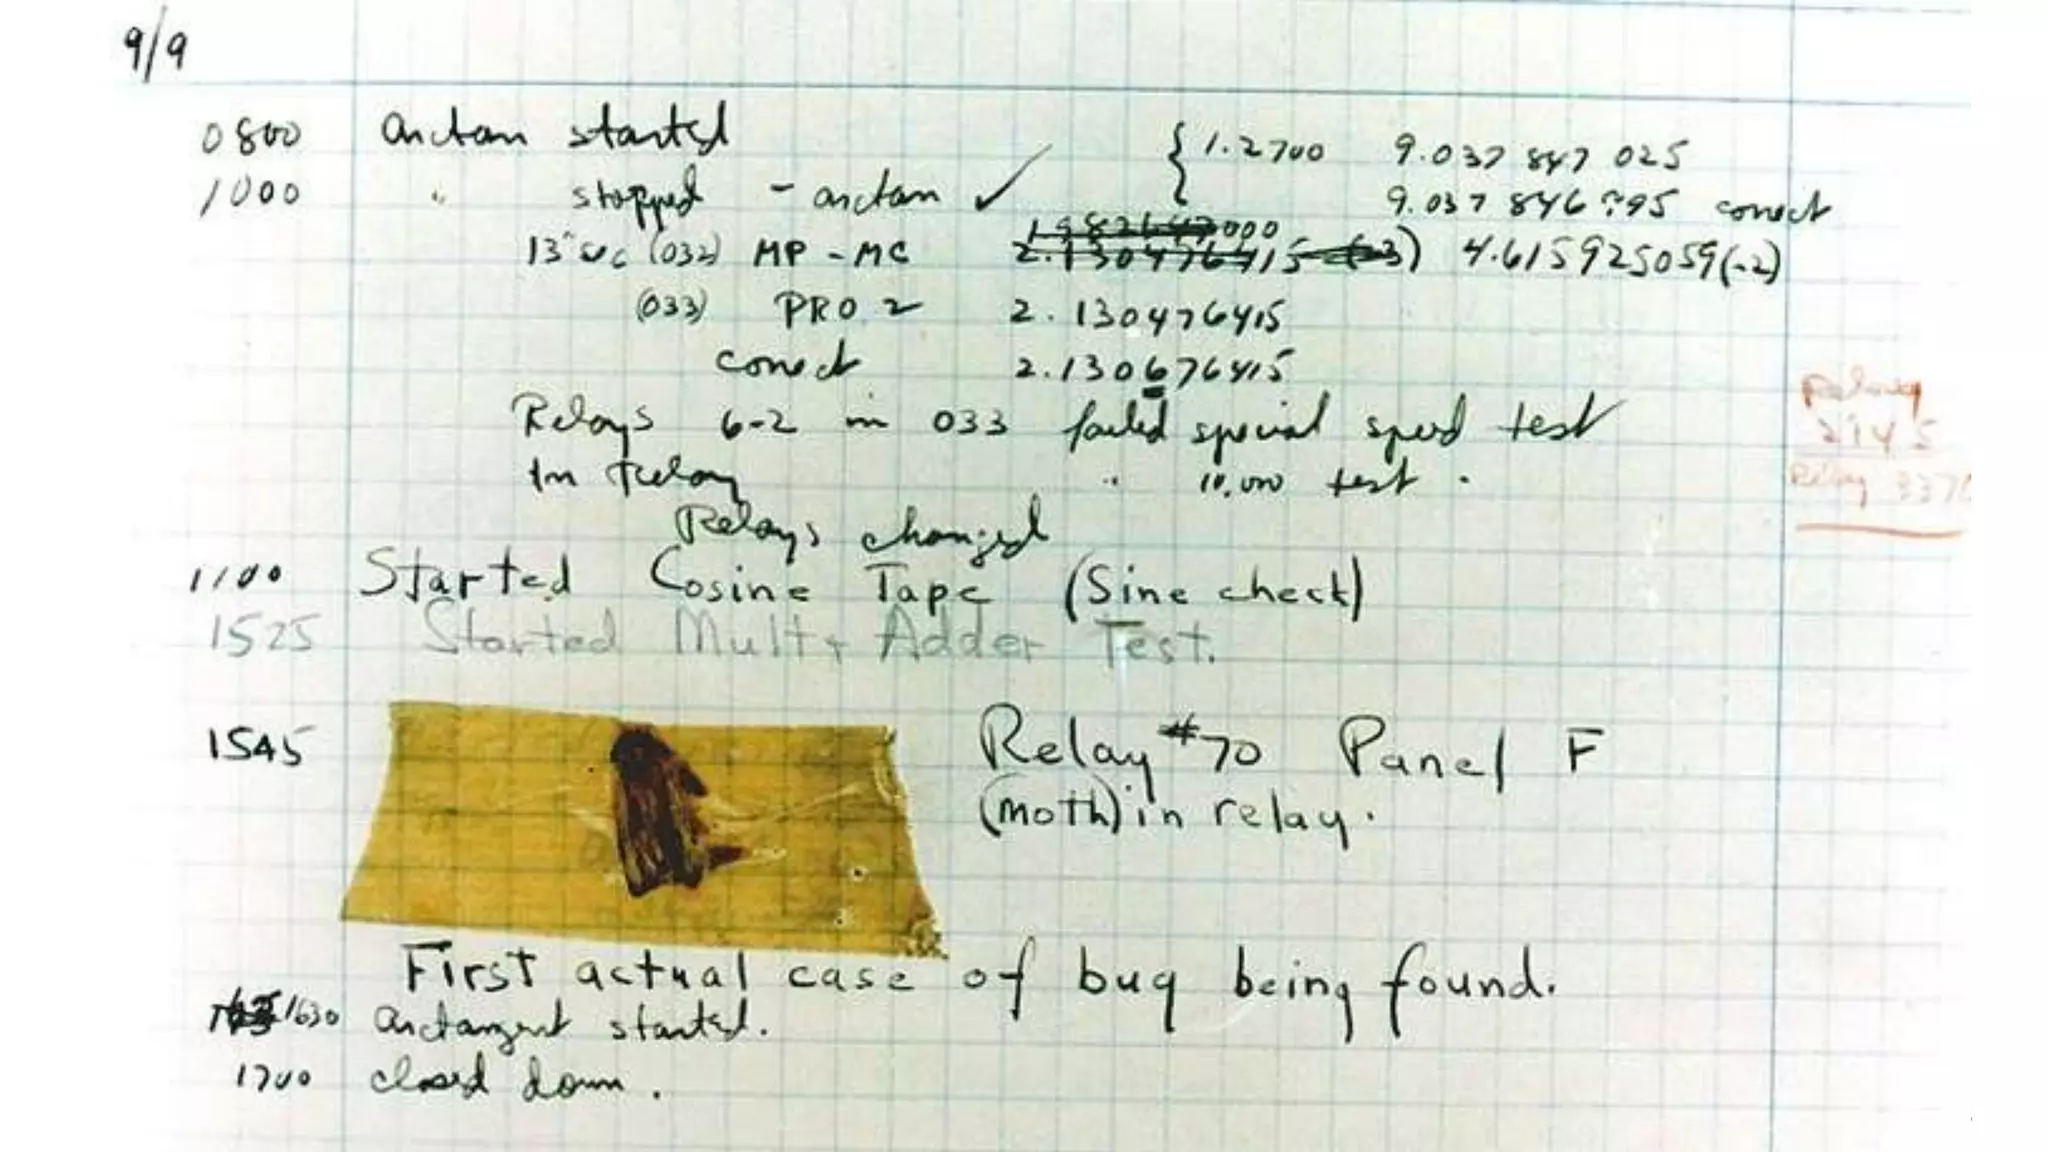 9/9
0800 arctan started { 1.2700 9.037 847 025
1000 " stopped - arctan ✓ 9.037 846 795 correct
000
13 (032) MP - MC 2.130476415 (-3) 4.615925059(-2)
(033) PRO 2 2.130476415
correct 2.130676415
Relays 6-2 in 033 failed special speed test
In Relay " 10,000 test.
Relays changed
Relay
2145
Relay 337
1100 Started Cosine Tape (Sine check)
1525 Started Mult + Adder Test.
1545 Relay #70 Panel F
(moth) in relay.
First actual case of bug being found.
1630 arctangent started.
1700 closed down.